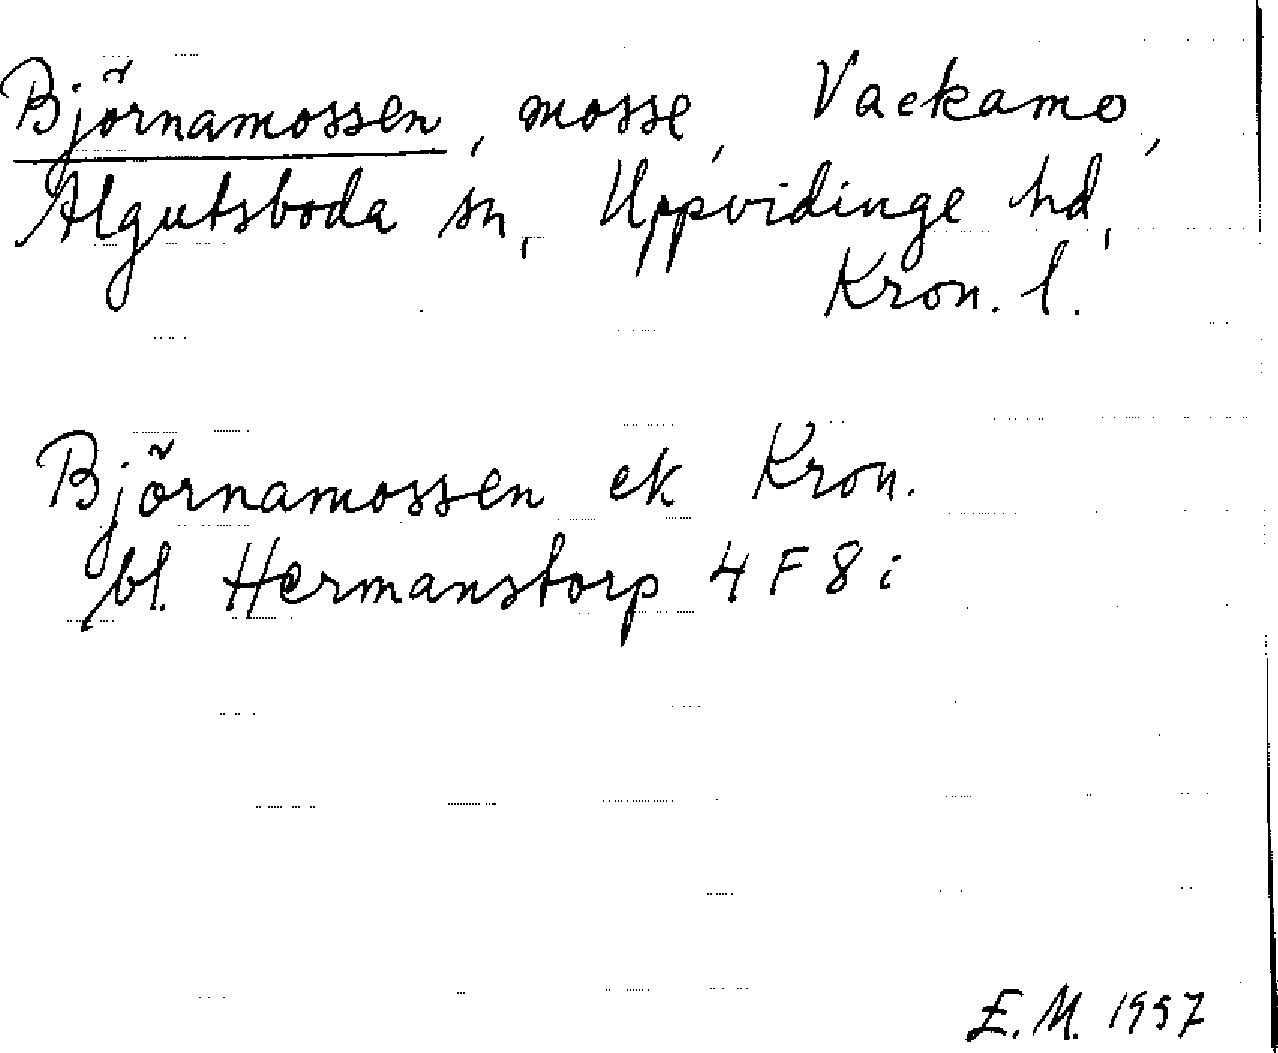 Björnamossen, mosse, Vackamo,
Algutsboda sn, Uppvidinge hd,
Kron. l.
Björnamossen ek Kron.
bl. Hermanstorp 4 F 8 i
E.M. 1957